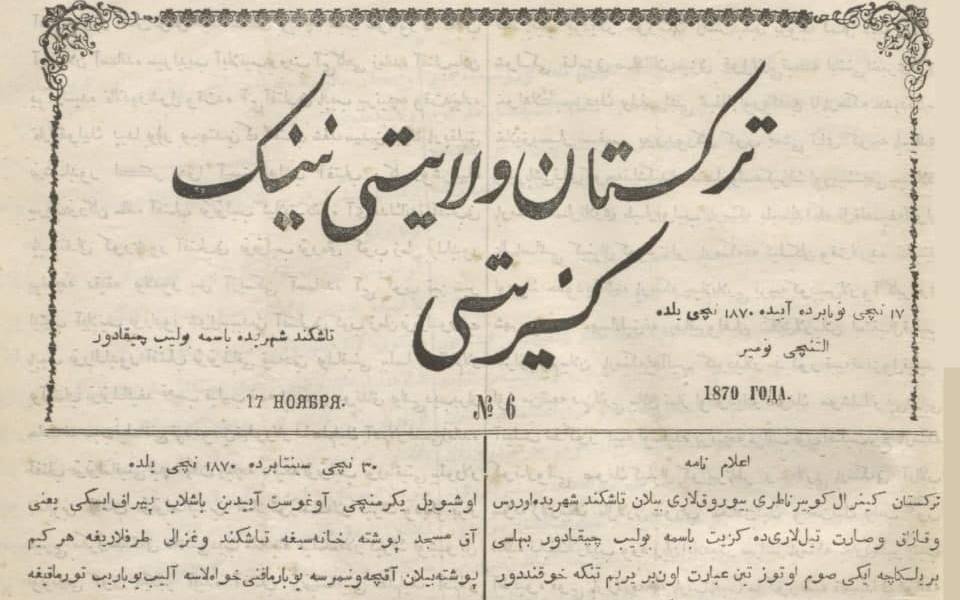 ترکستان ولایتی ننیک
کزیتی
۱۷ نچی نویابرده آییده ۱۸۷۰ نچی یلده
التنچی نومیر
تاشکند شهریده باسمه بولیب چیقادور
17 НОЯБРЯ.
№ 6
1870 ГОДА.
اعلام نامه
ترکستان کینرال کوبیرناطری سوروقلاری بیلان تاشکند شهریده اوررس
وقازاق وصارت تیل‌لاری‌ده کزیت باسمه بولیب چیقادور بهاسی
بریللکاچه ایکی صوم اوتوز تین عبارت اون‌بر یریم تنکه خوقندد‌ور
۳۰ نچی سینتابرده ۱۸۷۰ نچی یلده
اوشبویل یکرمنچی آوغوست آییدین باشلاب پیراف‌ایسکی یعنی
آق مسجد پوشته خانه‌سیغه تاشکند وغزالی طرفلاریغه هر کیم
پوشته‌بیلان آقچه ونیمرسه یوبارماقنی خواه‌لاسه آلیب یوباریب تورماقیغه